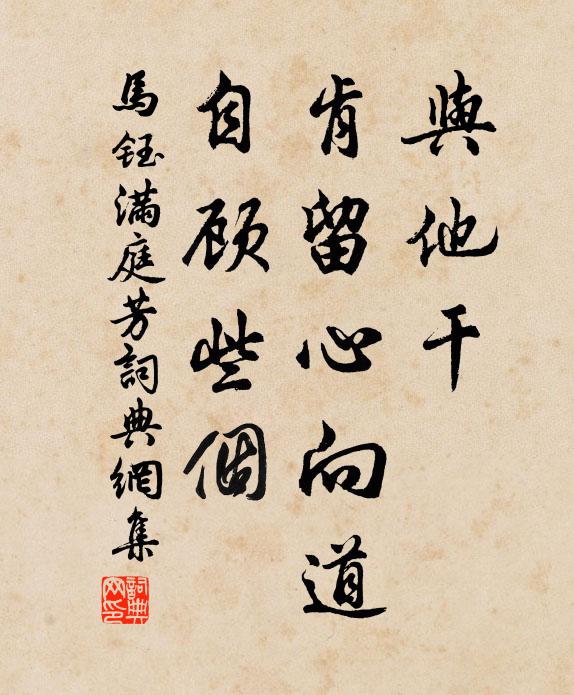 與他干
肯留心向道
自顾些個
馬鈺滿庭芳詞典網集
詞典网印